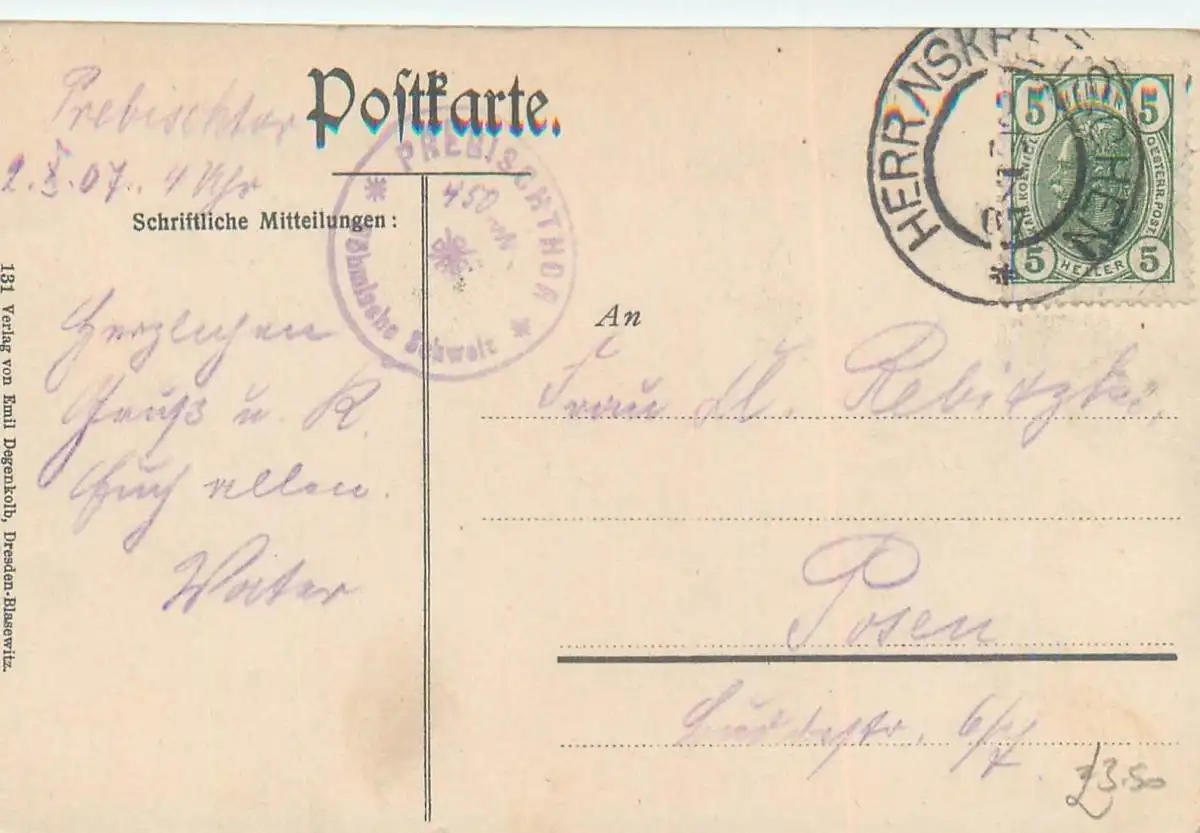 Postkarte.
Prebischtor
2. X. 07. 4 Uhr
Schriftliche Mitteilungen:
PREBISCHTHOR
450 m
Böhmische Schweiz
HERRNSKRETSCHEN
07
5 5
KAIS. KOENIGL. OESTERR. POST.
5 HELLER 5
Herzlichen
Gruß u. K.
Euch allen.
Vater
An
Frau M. Rebitzki.
Posen
6/7
131 Verlag von Emil Degenkolb, Dresden-Blasewitz.
£3.50